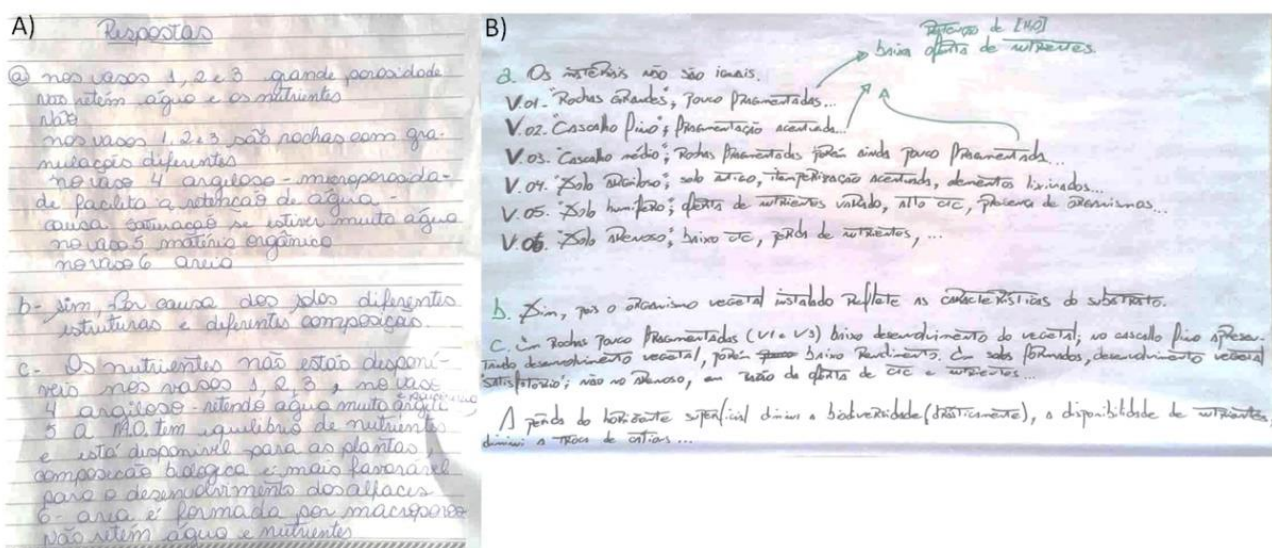 A)
Respostas
a) nos vasos 1, 2 e 3 grande porosidade
não retém água e os nutrientes
não
nos vasos 1, 2 e 3 são rochas com gra-
nulações diferentes
no vaso 4 argiloso - microporosida-
de facilita a retenção de água -
causa saturação se estiver muita água
no vaso 5 matéria orgânica
no vaso 6 areia
b- sim, por causa dos solos diferentes
estruturas e diferentes composições.
c- Os nutrientes não estão disponí-
veis nos vasos 1, 2, 3, no vaso
4 argiloso - retendo água muito
5 a M.O. tem equilíbrio de nutrientes
e está disponível para as plantas
composição biológica e mais favorável
para o desenvolvimento dos alfaces
6- areia é formada por macroporos
não retém água e nutrientes
B)
Retenção de [H2O]
baixa oferta de nutrientes.
a. Os materiais não são iguais.
V.01. "Rochas grandes"; pouco fragmentadas...
V.02. "Cascalho fino"; fragmentação acentuada...
V.03. "Cascalho médio"; Rochas fragmentadas porém ainda pouco fragmentada...
V.04. "Solo argiloso"; solo antigo, intemperização acentuada, elementos lixiviados...
V.05. "Solo humífero"; oferta de nutrientes variado, alto CTC, presença de organismos...
V.06. "Solo arenoso"; baixo CTC, perda de nutrientes, ...
b. Sim, pois o organismo vegetal instalado reflete as características do substrato.
c. Em Rochas pouco fragmentadas (V1 e V3) baixo desenvolvimento do vegetal; no cascalho fino apresen-
tando desenvolvimento vegetal, porém baixo rendimento. Em solos formados, desenvolvimento vegetal
"satisfatório"; não no arenoso, em razão da oferta de CTC e nutrientes...
A perda do horizonte superficial diminui a biodiversidade (drásticamente), a disponibilidade de nutrientes,
diminui a troca de cátios...